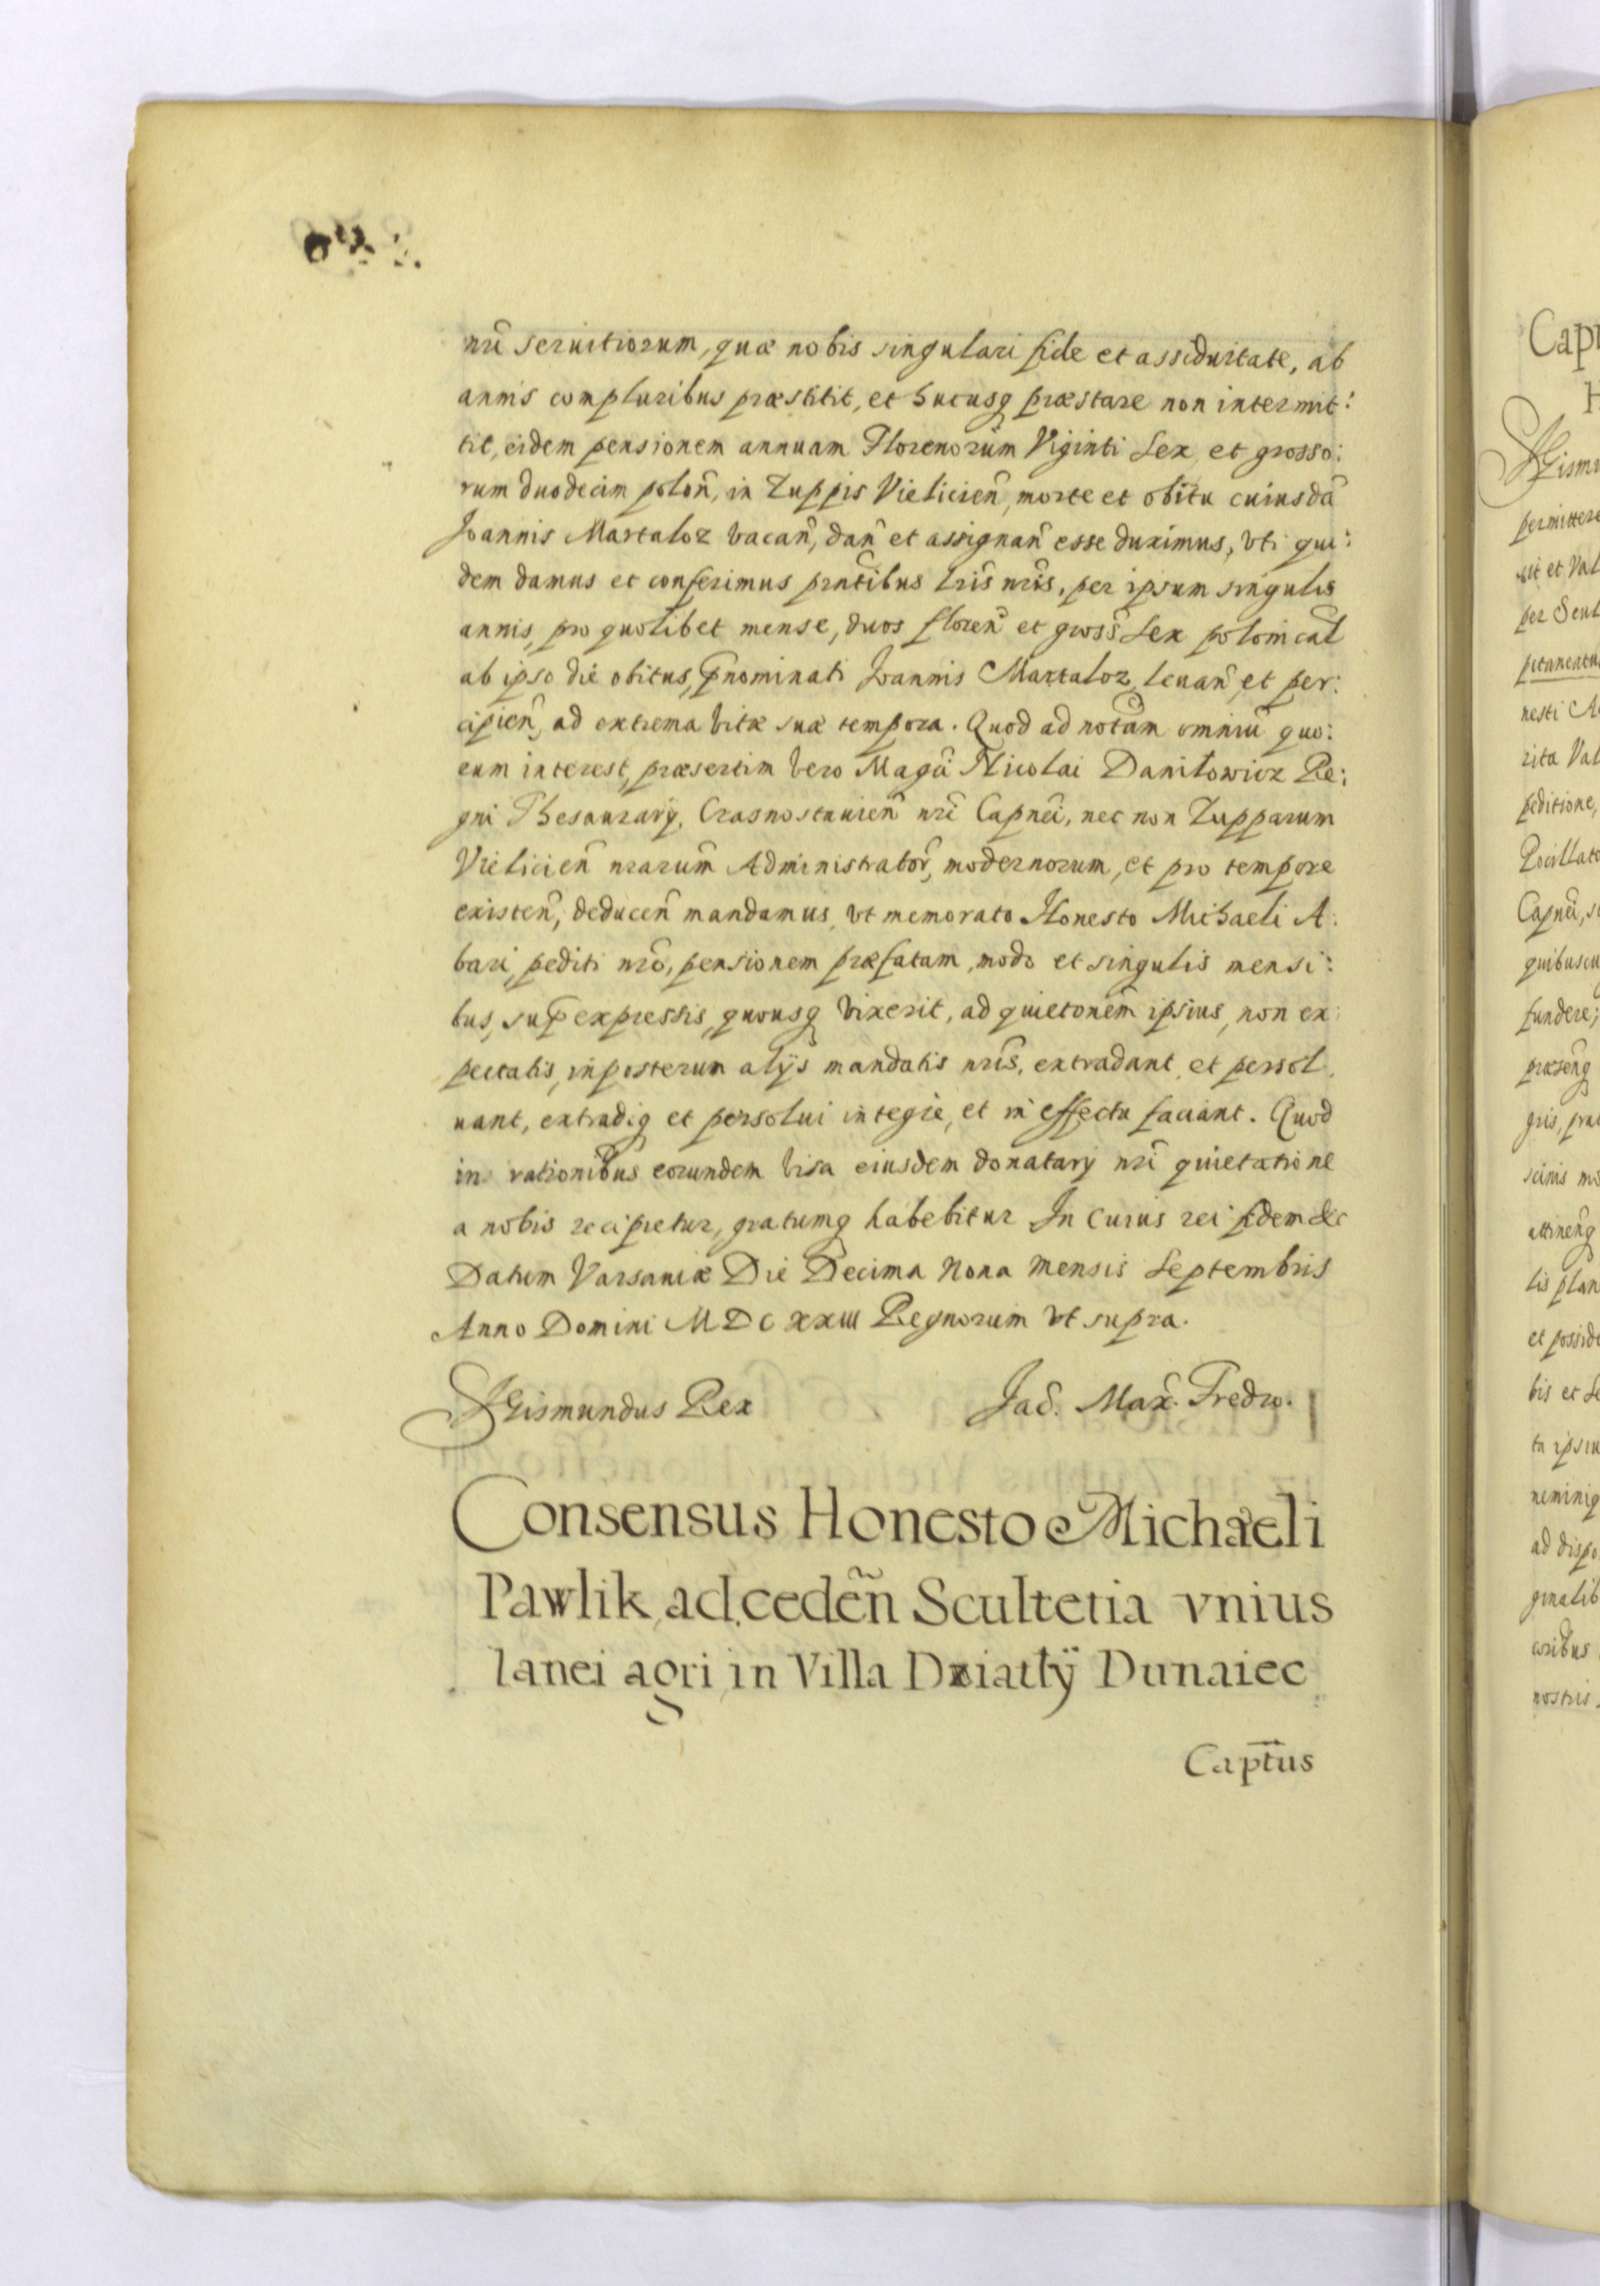 nri seruitiorum, quæ nobis singulari fide et assiduitate, ab
annis compluribus præstitit, et hucusq præstare non intermit:
tit, eidem pensionem annuam Florenorum Viginti Sex, et grosso:
rum duodecim polon, in Zuppis Vielicien, morte et obitu cuiusdã
Joannis Martaloz vacañ, dañ et assignañ esse duximus, vti qui:
dem damus et conferimus pñtibus lris nris, per ipsum singulis
annis, pro quolibet mense, duos floreñ et gross Sex polonical
ab ipso die obitus, pnominati Joannis Martaloz, leuañ et per:
cipieñ, ad extrema vitæ suæ tempora. Quod ad notam omniũ quo:
rum interest, præsertim vero Magci Nicolai Daniłowicz Re:
gni Thesaurarÿ, Crasnostauieñ nri Capnei, nec non Zupparum
Vielicieñ nrarum Administrator, modernorum, et pro tempore
existeñ, deduceñ mandamus, vt memorato Honesto Michaeli A:
bari, pediti nro, pensionem præfatam, modo et singulis mensi:
bus, sup expressis, quousq vixerit, ad quietonem ipsius, non ex:
pectatis, inposterum alÿs mandatis nris, extradant et persol.
uant, extradiq et persolui integre, et in effectu faciant. Quod
in rationibus eorundem visa eiusdem donatarÿ nri quietatione
a nobis recipietur, gratumq habebitur In cuius rei fidem &c
Datum Varsauiæ Die Decima Nona Mensis Septembris
Anno Domini MDCXXIII Regnorum vt supra.
Sigismundus Rex Jac. Max. Fredro.
Consensus Honesto Michaeli
Pawlik, ad cedeñ Scultetia vnius
lanei agri, in Villa Dziatlÿ Dunaiec
Captus
Capn
H
permittere
sit et Val
per Scul
pitaneatu
nesti
rita Val
peditione,
Pocillato
Capnei, s
quibuscu
fundere;
gris, prat
scinis mo
attineñq
lis plan
et posside
bis et Se
ta ipsiu
neminiq
ad dispo
ginalib
oribus
nostris